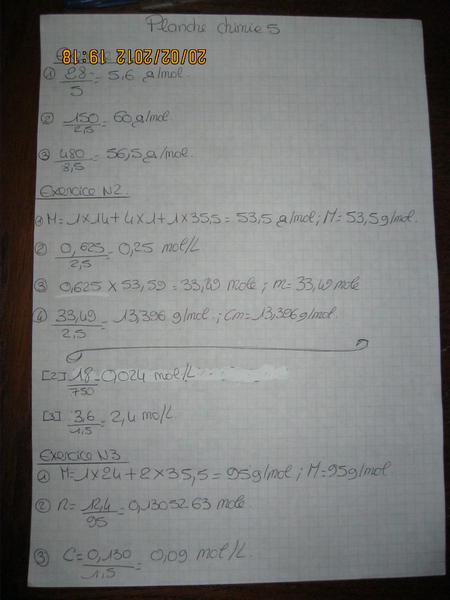 Planche chimie 5
20/02/2012 19:18
① 28/5 = 5,6 g/mol.
② 150/2,5 = 60g/mol.
③ 480/8,5 = 56,5g/mol.
Exercice N2.
① M=1x14+4x1+1x35,5=53,5 g/mol; M=53,5g/mol.
② 0,625/2,5 = 0,25 mol/L
③ 0,625 x 53,59 = 33,49 mole ; m= 33,49 mole
④ 33,49/2,5 = 13,396 g/mol. ; Cm=13,396g/mol.
[2] 18/750 = 0,024 mol/L
[3] 3,6/1,5 = 2,4 mol/L.
Exercice N3
① M=1x24+2x35,5=95g/mol ; M=95g/mol
② n= 12,4/95 = 0,1305263 mole
③ C= 0,130/1,5 = 0,09 mol/L.